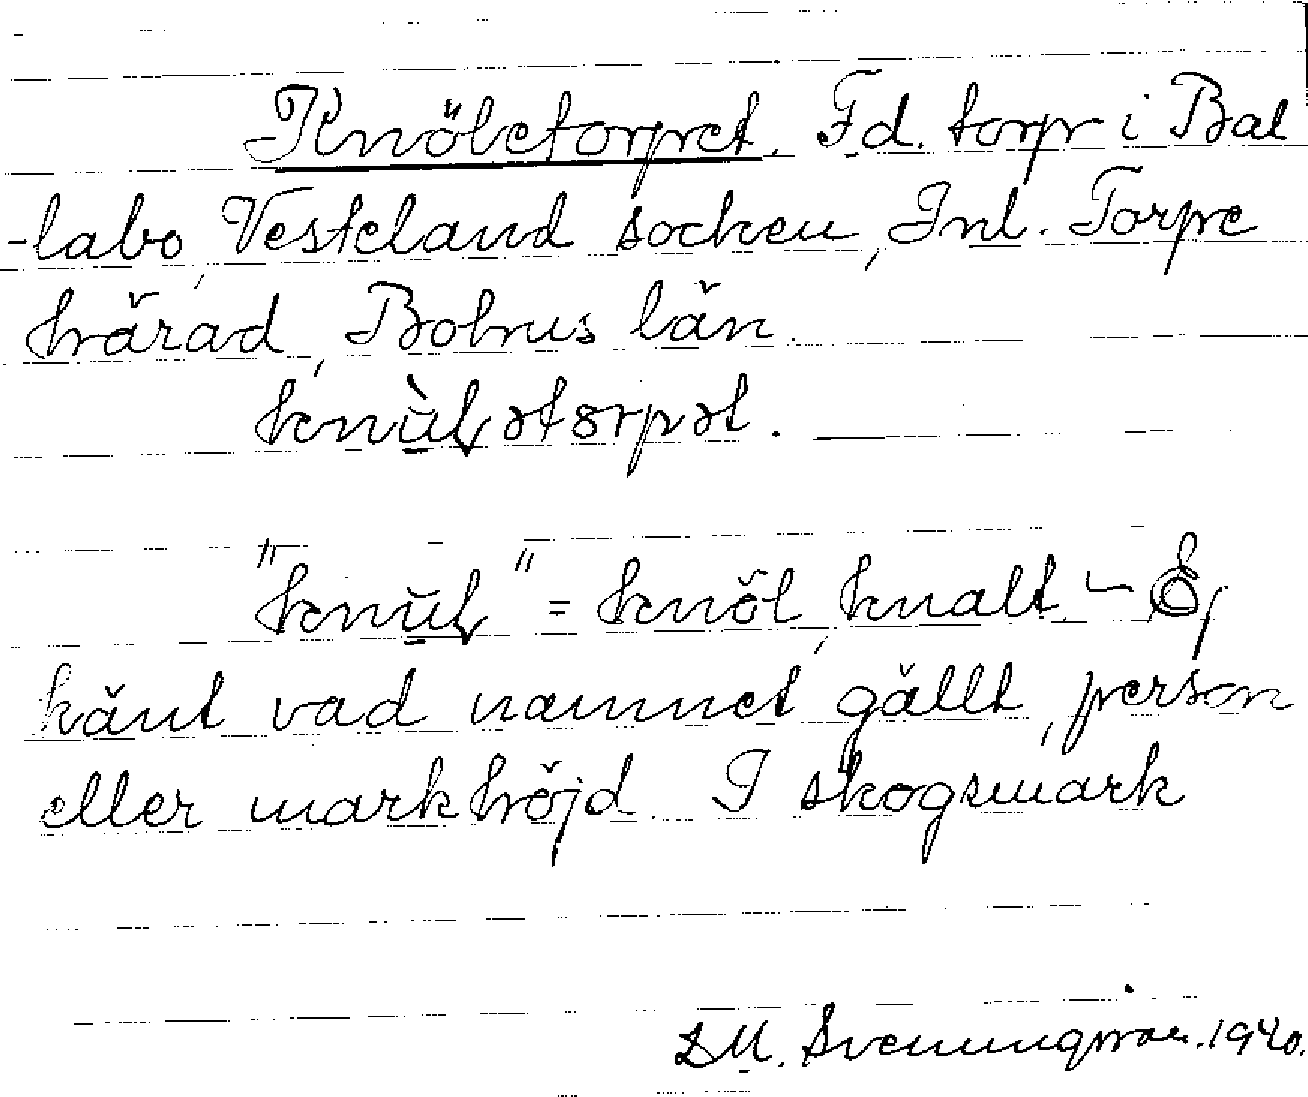 Knöletorpet. Fd. torp i Bal
-labo, Vesterland socken, Inl. Torpe
härad, Bohus län.
knùlətɷrpət.
"knul" = knöl, knalt. – Ej
känt vad namnet gällt, person
eller markhöjd. I skogsmark
S.M. Svenungsson. 1940.